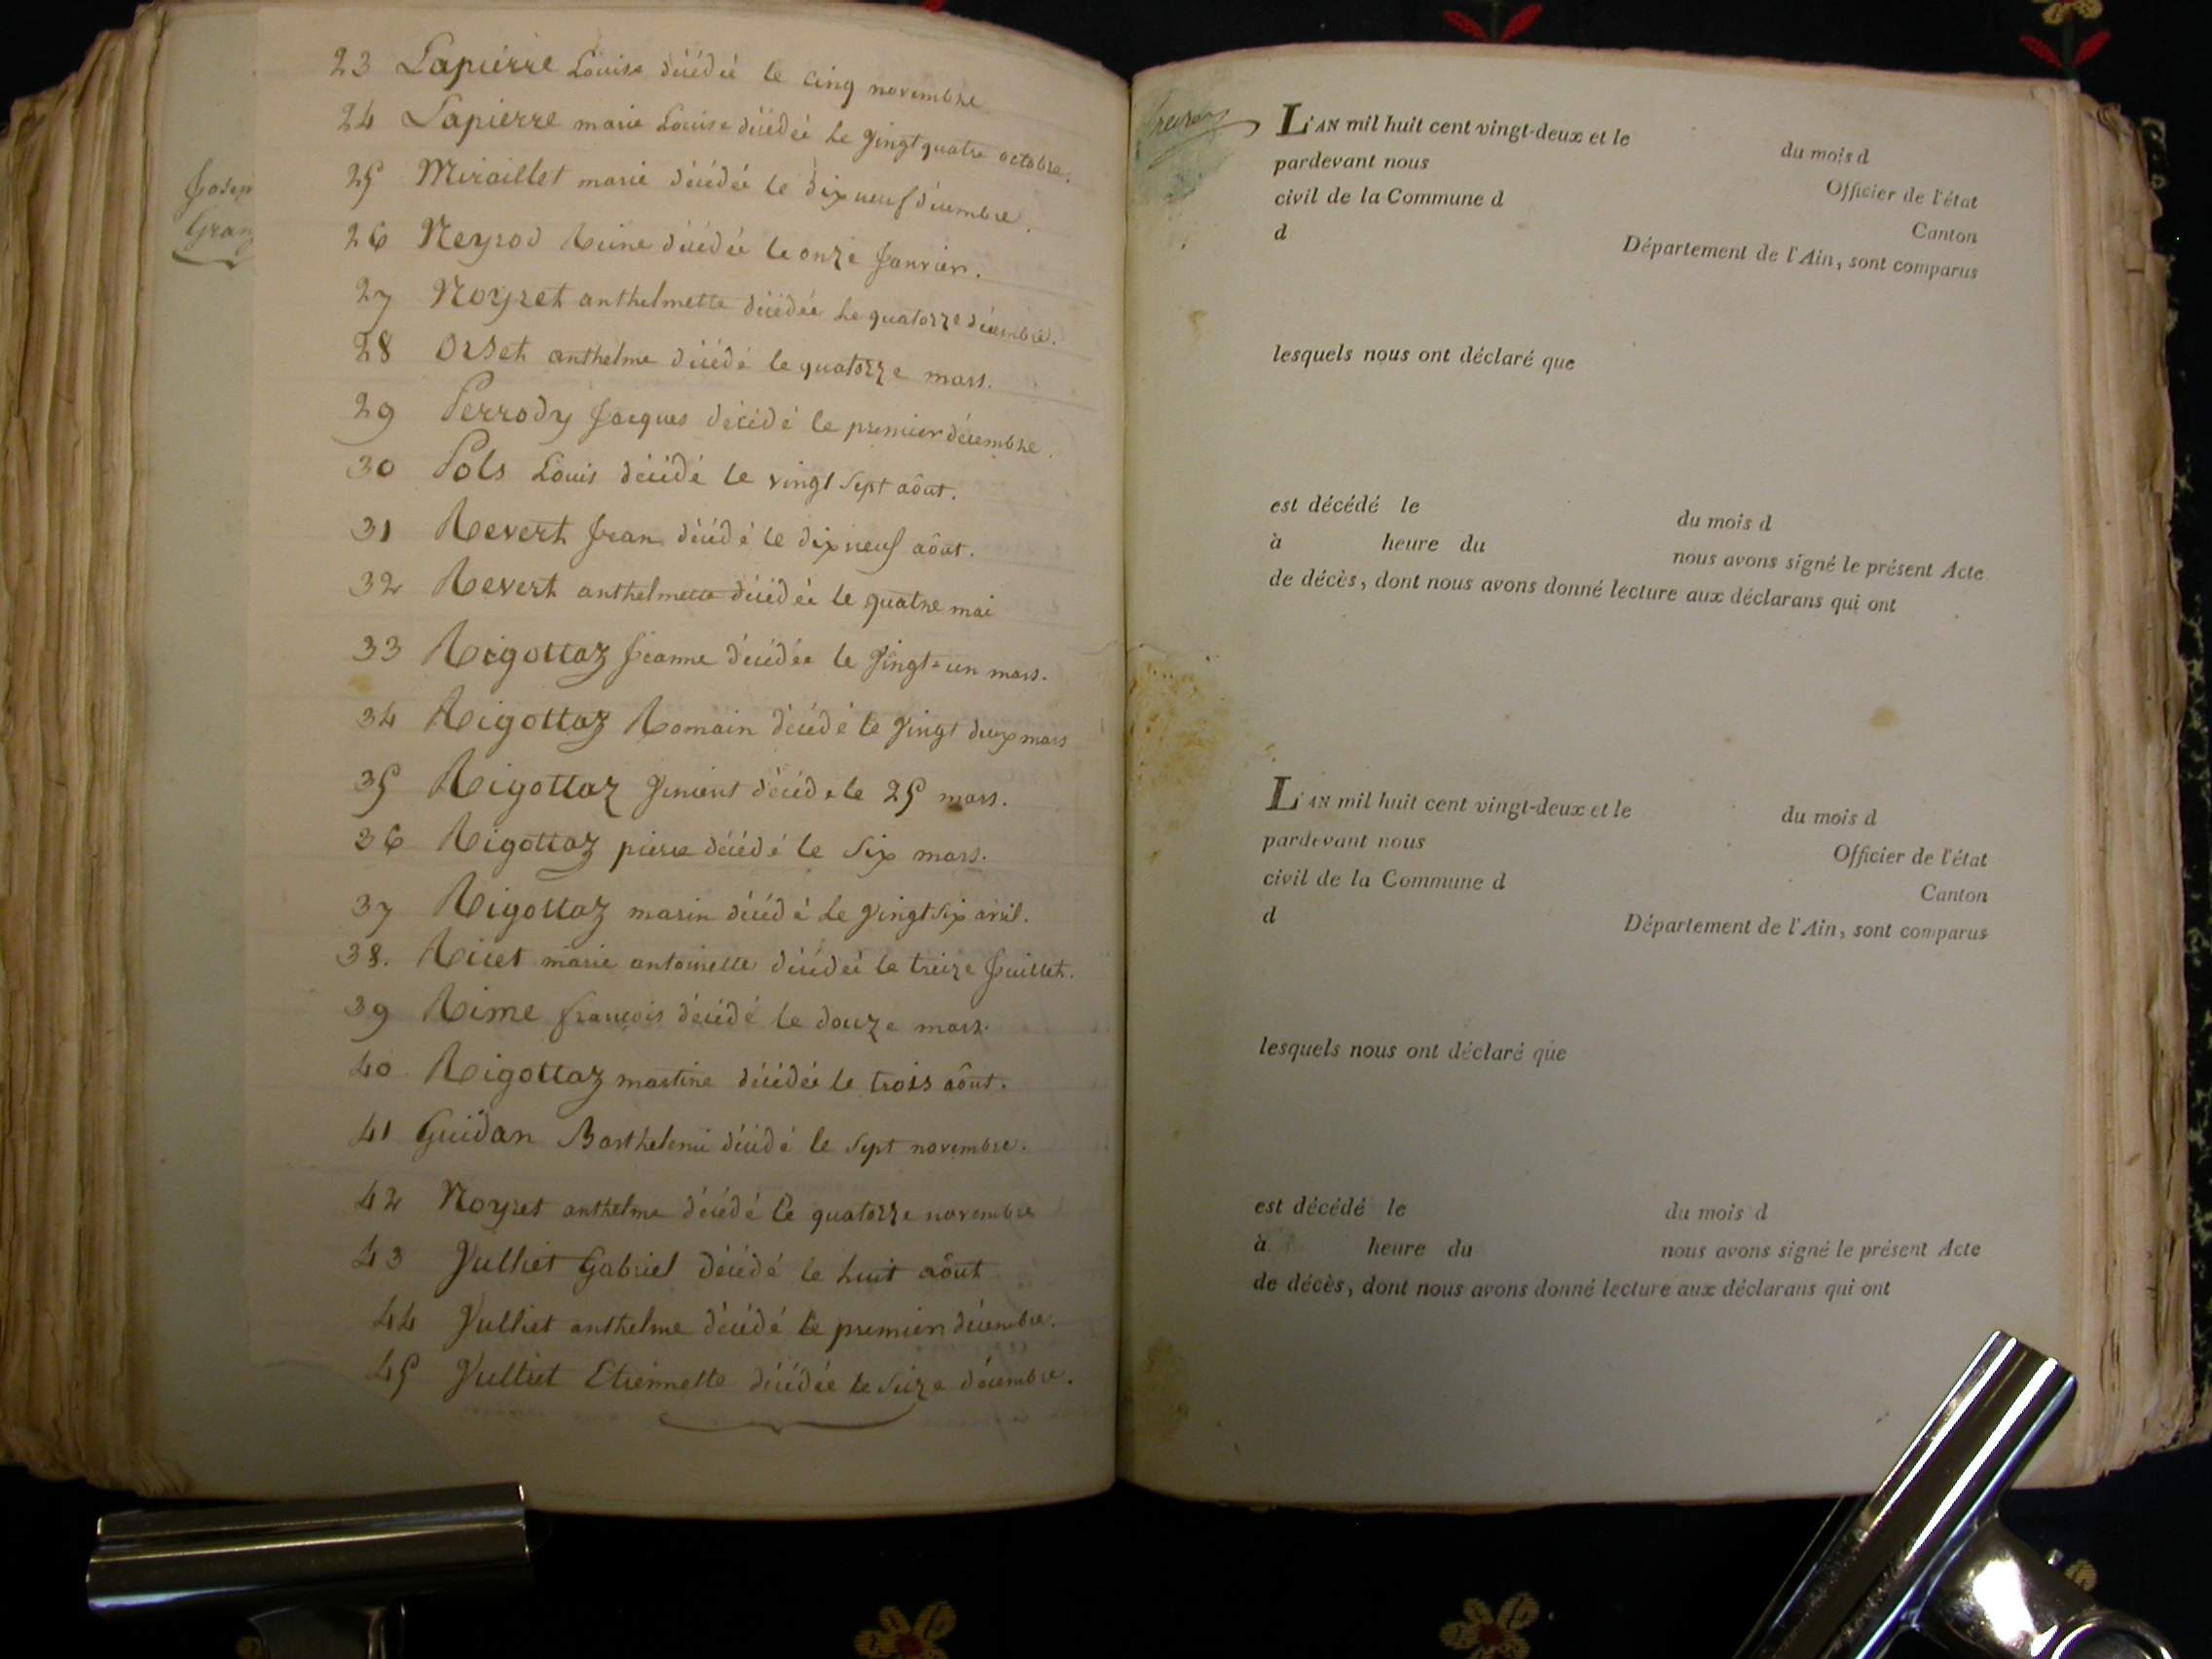 23 Lapierre Louise décédée le cinq novembre
24 Lapierre marie Louise décédée le vingt quatre octobre.
25 Miraillet marie décédée le dix neuf décembre.
26 Neyrod Reine décédée le onze Janvier.
27 Noyret anthelmette décédée le quatorze décembre.
28 Orset anthelme décédé le quatorze mars.
29 Perrody Jacques décédé le premier décembre.
30 Pols Louis décédé le vingt Sept aôut.
31 Revert Jean décédé le dix neuf aôut.
32 Revert anthelmette décédée le quatre mai
33 Rigottaz Jeanne décédée le vingt-un mars.
34 Rigottaz Romain décédé le vingt deux mars
35 Rigottaz décédé le 25 mars.
36 Rigottaz pierre décédé le Six mars.
37 Rigottaz marin décédé le vingt Six avril.
38. marie antoinette décédée le treize Juillet.
39 Rime françois décédé le douze mars.
40 Rigottaz martine décédée le trois aôut.
41 Guidan Barthelemi décédé le Sept novembre.
42 Noyret anthelme décédé le quatorze novembre
43 Vulliet Gabriel décédé le huit aôut
44 Vulliet anthelme décédé le premier décembre.
45 Vulliet Etiennette décédée le Seize décembre.
L'AN mil huit cent vingt-deux et le du mois d
pardevant nous Officier de l'état
civil de la Commune d Canton
d Département de l'Ain, sont comparus
lesquels nous ont déclaré que
est décédé le du mois d
à heure du nous avons signé le présent Acte
de décès, dont nous avons donné lecture aux déclarans qui ont
L'AN mil huit cent vingt-deux et le du mois d
pardevant nous Officier de l'état
civil de la Commune d Canton
d Département de l'Ain, sont comparus
lesquels nous ont déclaré que
est décédé le du mois d
à heure du nous avons signé le présent Acte
de décès, dont nous avons donné lecture aux déclarans qui ont